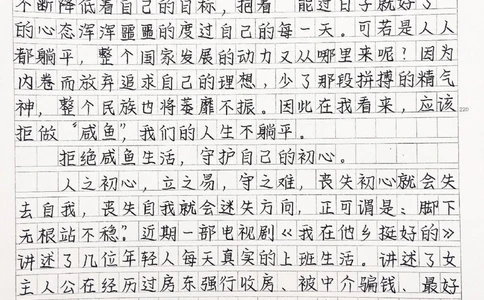 不断降低着自己的目标，抱着“能过日子就好了”
的心态浑浑噩噩的度过自己的每一天。可若是人人
都躺平，整个国家发展的动力又从哪里来呢？因为
内卷而放弃追求自己的理想，少了那段拼搏的精气
神，整个民族也将萎靡不振。因此在我看来，应该
220
拒做“咸鱼”，我们的人生不躺平。
拒绝咸鱼生活，守护自己的初心。
人之初心，立之易，守之难，丧失初心就会失
去自我，丧失自我就会迷失方向，正可谓是：脚下
无根站不稳？近期一部电视剧《我在他乡挺好的》
讲述了几位年轻人每天真实的上班生活。讲述了女
主人公在经历过房东强行收房、被中介骗钱、最好